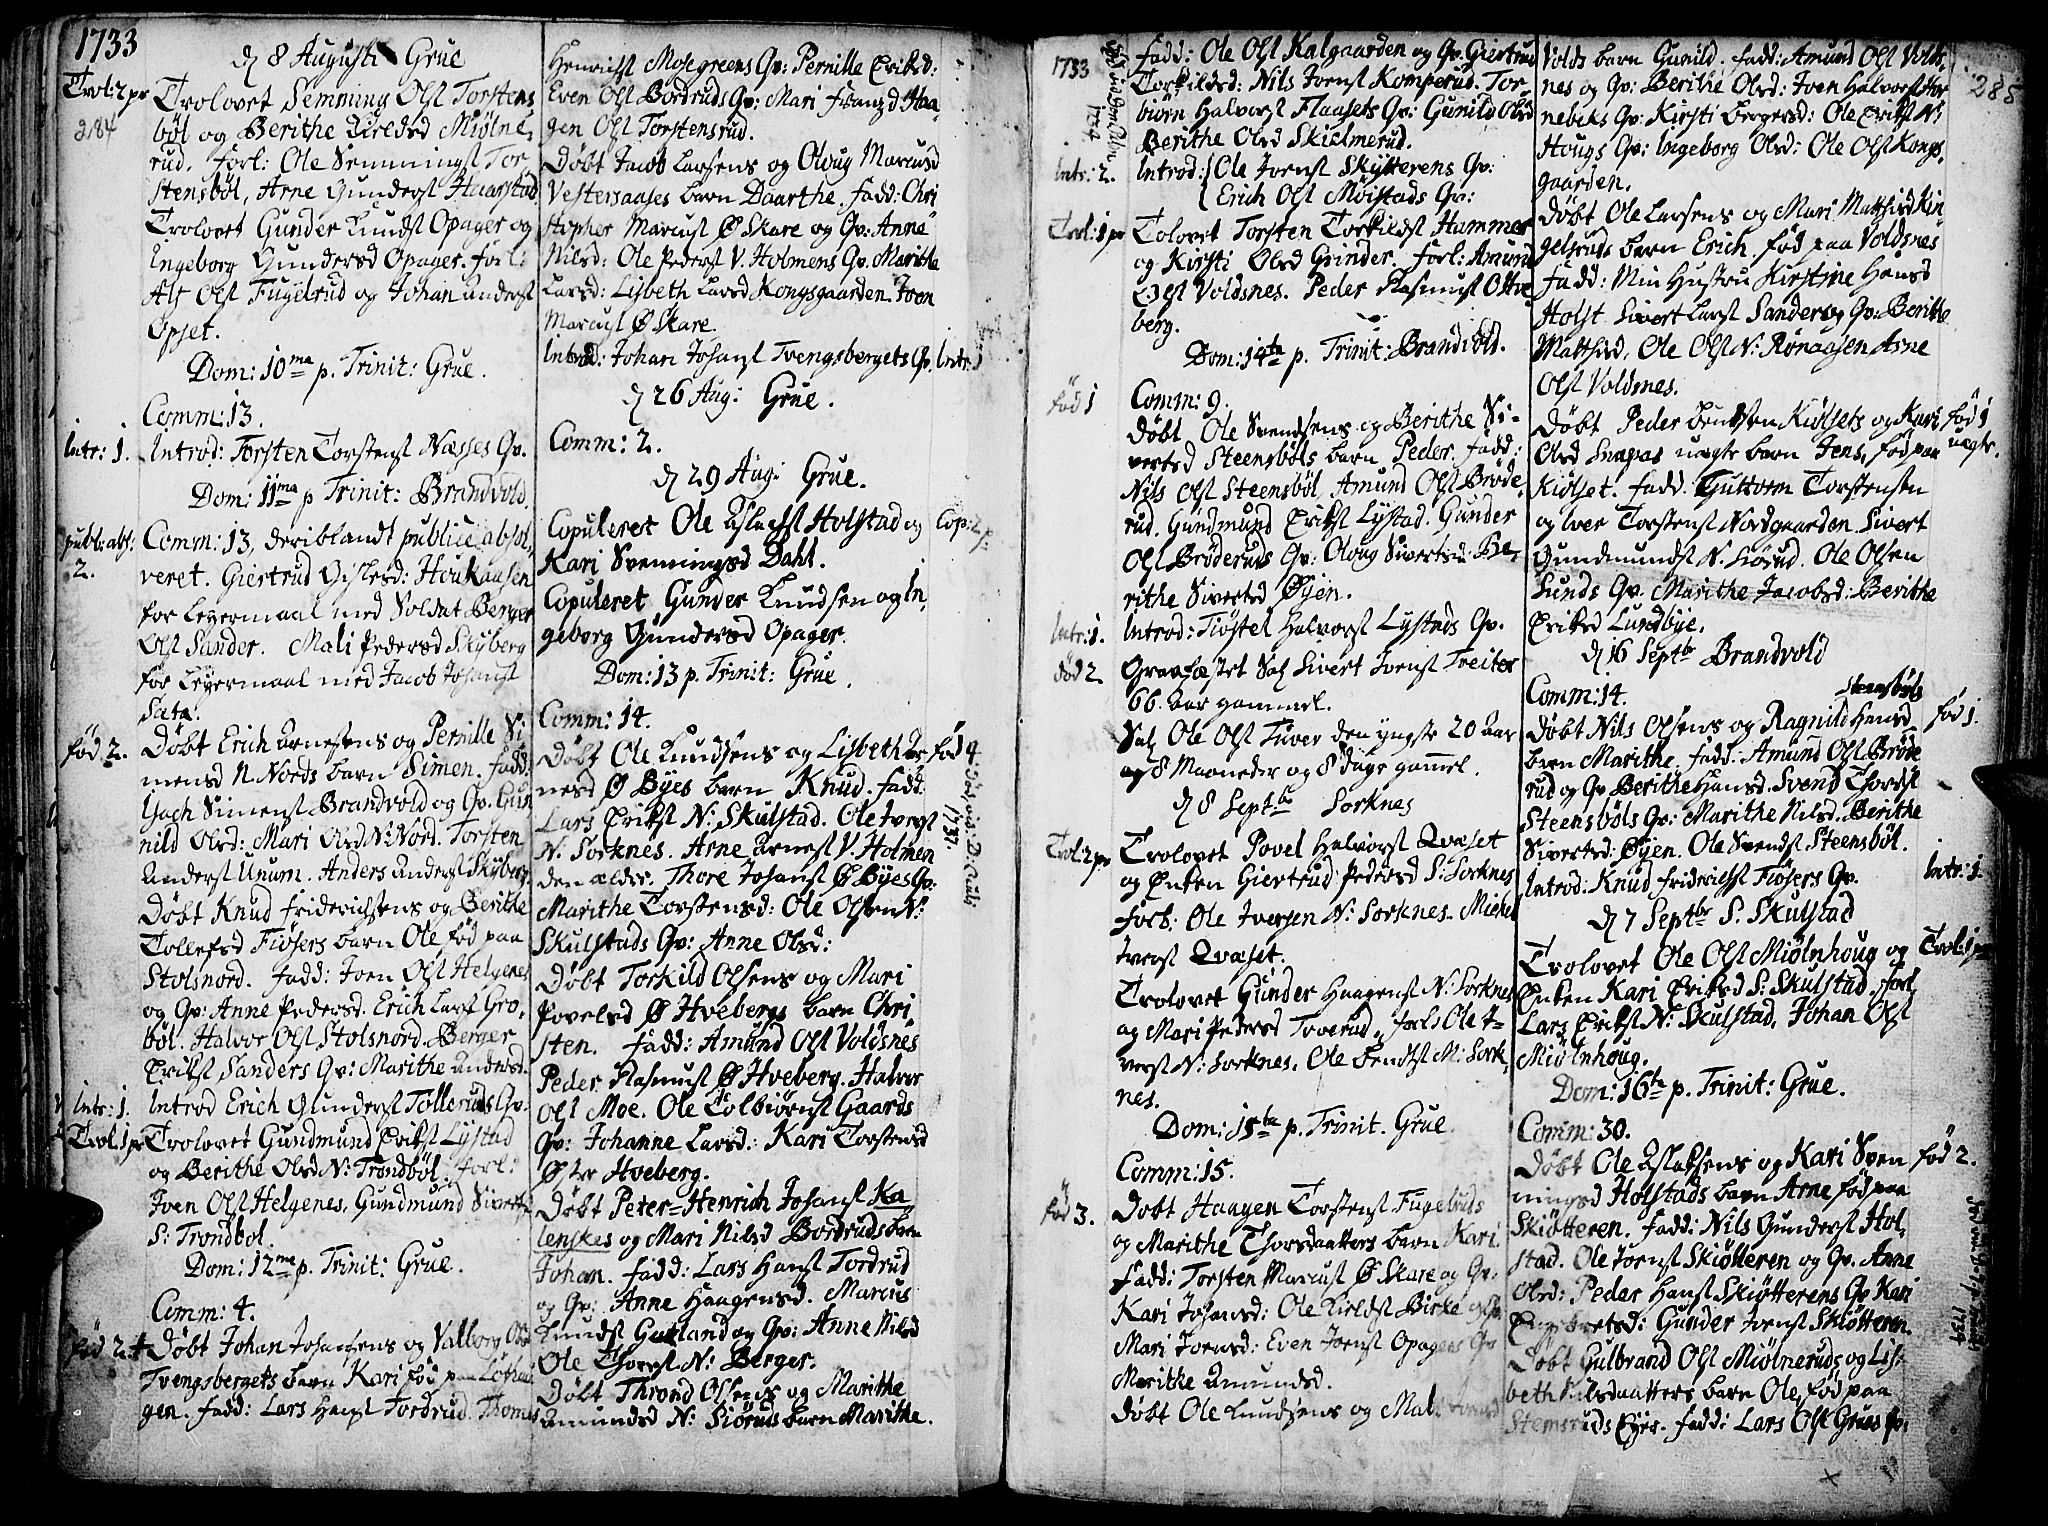 1733
d 8 Augusti Grue
Trol: 2 pr
284
Trolovet Semming Olss Torstens
böl og Berithe Kieldsd Miölne,
rud. forl: Ole Semmingss Tor
stensböl, Arne Gunderss Haarstad
Trolovet Gunder Knudss Opager og
Ingeborg Gundersd Opager. forl:
Alf Olss Fugelrud og Johan Anderss
Opset.
Dom: 10ma p. Trinit: Grue.
Comm: 13.
Intr: 1. Introd: Torsten Torstenss Næsses Qv.
Dom: 11ma p Trinit: Brandvold.
publ: abs: 2.
Comm: 13, deriblandt publice absol,
veret. Giertrud Gislesd: Houkaasen
for Leyermaal med Soldat Berger
Olss Sander. Mali Pedersd Skyberg
for Leyermaal med Jacob Johanss
Sata.
föd 2.
Döbt Erich Arnesens og Pernille Si
mensd N. Nords barn Simen. fadd:
Gach Simenss Brandvold og Qv: Gun
nild Olsd: Mari Olsd N: Nord. Torsten
Anderss Unum. Anders Anderss Skyberg.
Döbt Knud Friderichsens og Berithe
Tollefsd Fiösers barn Ole föd paa
Stolsnord. fadd: Joen Olss Helgenes
og Qv: Anne Pedersd. Erich Larss Gro,
böl. Halvor Olss Stolsnord. Berger
Erikss Sanders Qv: Marithe Andersd.
Intr: 1. Introd Erich Gunderss Tollerud Qv.
Trol: 1 pr Trolovet Gundmund Erikss Lystad
og Berithe Olsd N: Trondböl. forl:
Joen Olss Helgenes, Gundmund Sivertss
S: Trondbol.
Dom: 12me p. Trinit: Grue.
Comm: 4.
föd 2. + Döbt Johan Johansens og Valborg Olsd
Tvengsbergets barn Kari föd paa Löhau
gen. fadd: Lars Hanss Tordrud. Thomes
Henrichss Molegreens Qv: Pernille Eriksd:
Even Olss Bordruds Qv: Mari Frangsd Haa
gen Olss Torstensrud.
Döbt Jacob Larsens og Oloug Marcusd
Vestersaases barn Daarthe. fadd: Chri
stopher Marcuss Ø Skare og Qv: Anne
Nilsd: Ole Pederss V. Holmens Qv. Marithe
Larsd: Lisbeth Larsd Kongsgaarden. Joen
Marcuss Ø Skare.
Introd: Johan Johanss Tvengsbergets Qv. Intr: 1
d 26 Aug: Grue.
Comm: 2.
d 29 Aug: Grue.
Copuleret Ole Aslachss Holstad og Cop: 2 p:
Kari Svenningsd Dahl.
Copuleret Gunder Knudsen og In,
geborg Gundersd Opager.
Dom: 13 p. Trinit: Grue.
Comm: 14.
Döbt Ole Knudsens og Lisbeth Ar föd 4
nesd Ø Byes barn Knud. fadd:
Lars Erikss N: Skulstad. Ole Iverss
N: Sorknes. Arne Arness V. Holmen
den ældre. Thore Johanss Ø Byes Qv:
Marithe Torstensd: Ole Olsen N:
Skulstads Qv: Anne Olsd:
Döbt Torkild Olsens og Mari
Povelsd Ø Hvebergs barn Chri
sten. fadd: Amund Olss Voldsnes
Peder Rasmuss Ø Hveberg. Halvor
Olss Moe. Ole Tolbiörnss Gaards
Qv: Johanne Larsd: Kari Torstensd
Øster Hveberg.
Döbt Peter=Henrich Johanss Ka
lenskes og Mari Nilsd Bordruds barn
Johan. fadd: Lars Hanss Tordrud
og Qv: Anne Haagensd. Marcus
Knudss Gotland og Qv: Anne Nilsd
Ole Thorss N: Berger.
Döbt Thrond Olsens og Marithe
Amundsd N: Siöruds barn Marithe.
1733
fadd: Ole Olss Kalgaarden og Qv. Giertrud
Torkildsd: Nils Joenss Komperud. Tor-
biörn Halvorss Flaasets Qv: Gunild Olsd
Berithe Olsd Skielmerud.
Intr: 2. Introd: Ole Joenss Skytterens Qv:
Erich Olss Möistads Qv:
Trol: 1 pr Tolovet Torsten Torkildss Hammer
og Kirsti Olsd Grinder. forl: Amund
Olss Voldsnes. Peder Rasmuss Ø Hve
berg.
Dom: 14ta p. Trinit: Brandvold.
föd 1
Comm: 9.
Döbt Ole Svendsens og Berithe Si-
vertsd Steensböls barn Peder. fadd:
Nils Olss Steensböl, Amund Olss Bröde,
rud. Gundmund Erikss Lystad. Gunder
Olss Bröderuds Qv: Oloug Sivertsd: Be,
rithe Sivertsd Øyen.
Intr: 1. Introd: Tiöstel Halvorss Lystads Qv.
död 2 Graafæstet Sal Sivert Joenss Treiter
66. Aar gammel.
Sal Ole Olss Tuver den yngste 20 Aar
og 8 Maaneder og 8 dage gammel.
d 8 Septbr Sorknes
Trol: 2 pr Trolovet Povel Halvorss Qvæset
og Enken Giertrud Pedersd S: Sorknes
forl: Ole Iversen N: Sorknes. Mickel
Iverss Qvæset.
Trolovet Gunder Haagenss N: Sorknes
og Mari Pedersd Tverud, forls Ole I=
verss N: Sorknes. Ole Bendtss M: Sork,
nes.
Dom: 15ta p. Trinit. Grue
Comm: 15.
föd 3. Döbt Haagen Torstenss Fugelruds
og Marithe Thorsdaatters barn Kari.
fadd: Torsten Marcuss Ø Skare og Qv:
Kari Johansd: Ole Kieldss Birke og Qv
Mari Joensd: Even Joenss Opagers Qv
Marithe Amundsd.
Döbt Ole Knudsens og Mali
285
Volds barn Gunild. fadd: Amund Olss Volds,
nes og Qv: Berithe Olsd: Joen Halvorss Hor
nebeks Qv: Kirsti Bergersd: Ole Erikss N:
Hougs Qv: Ingeborg Olsd: Ole Olss Kongs,
gaarden.
Döbt Ole Larsens og Mari Matthisd Rin
gelsruds barn Erich. föd paa Voldsnes
fadd: Min Hustru Kirstine Hansd
Holst. Sivert Larss Sander og Qv: Berithe
Matthisd, Ole Olss N: Rönaasen. Arne
Olss Voldsnes.
Döbt Peder Bentsen Kiölsets og Kari föd 1
Olsd Snapas uægte barn Jens, föd paa uægte.
Kiölset. fadd. Guttorm Torstensen
og Iver Torstenss Nordgaarden. Sivert
Gundmundss N. Siörud. Ole Olsen
Lunds Qv. Marithe Jacobsd: Berithe
Eriksd Lundbye.
d 16 Septbr Brandvold
Comm: 14. Steensböls
Döbt Nils Olsens og Ragnild Hansd föd 1.
barn Marithe. fadd: Amund Olss Bröde
rud og Qv Berithe Hansd. Svend Thordss
Steensböls Qv: Marithe Nilsd. Berithe
Sivertsd: Øyen. Ole Svendss Steensböl.
Introd: Knud Friderichss Fiösers Qv. Intr: 1.
d 7 Septbr S. Skulstad
Trolovet Ole Olss Miölnhoug og Trol: 1 pr
Enken Kari Eriksd S: Skulstad. forl.
Lars Erikss N: Skulstad, Johan Olss
Miölnhoug.
Dom: 16ta p. Trinit: Grue.
Comm: 30.
Döbt Ole Aslaksens og Kari Sven föd 2.
ningsd Holstads barn Arne föd paa
Skiötteren. fadd: Nils Gunderss Hol,
stad. Ole Joenss Skiötteren og Qv. Anne
Olsd: Peder Hanss Skiötterens Qv Kari
Engebretsd: Gunder Joenss Skiötteren.
Döbt Gulbrand Olss Miölneruds og Lis:
beth Nilsdaatters barn Ole, föd paa
Stemsruds Eyer. fadd: Lars Olss Grues Qv: